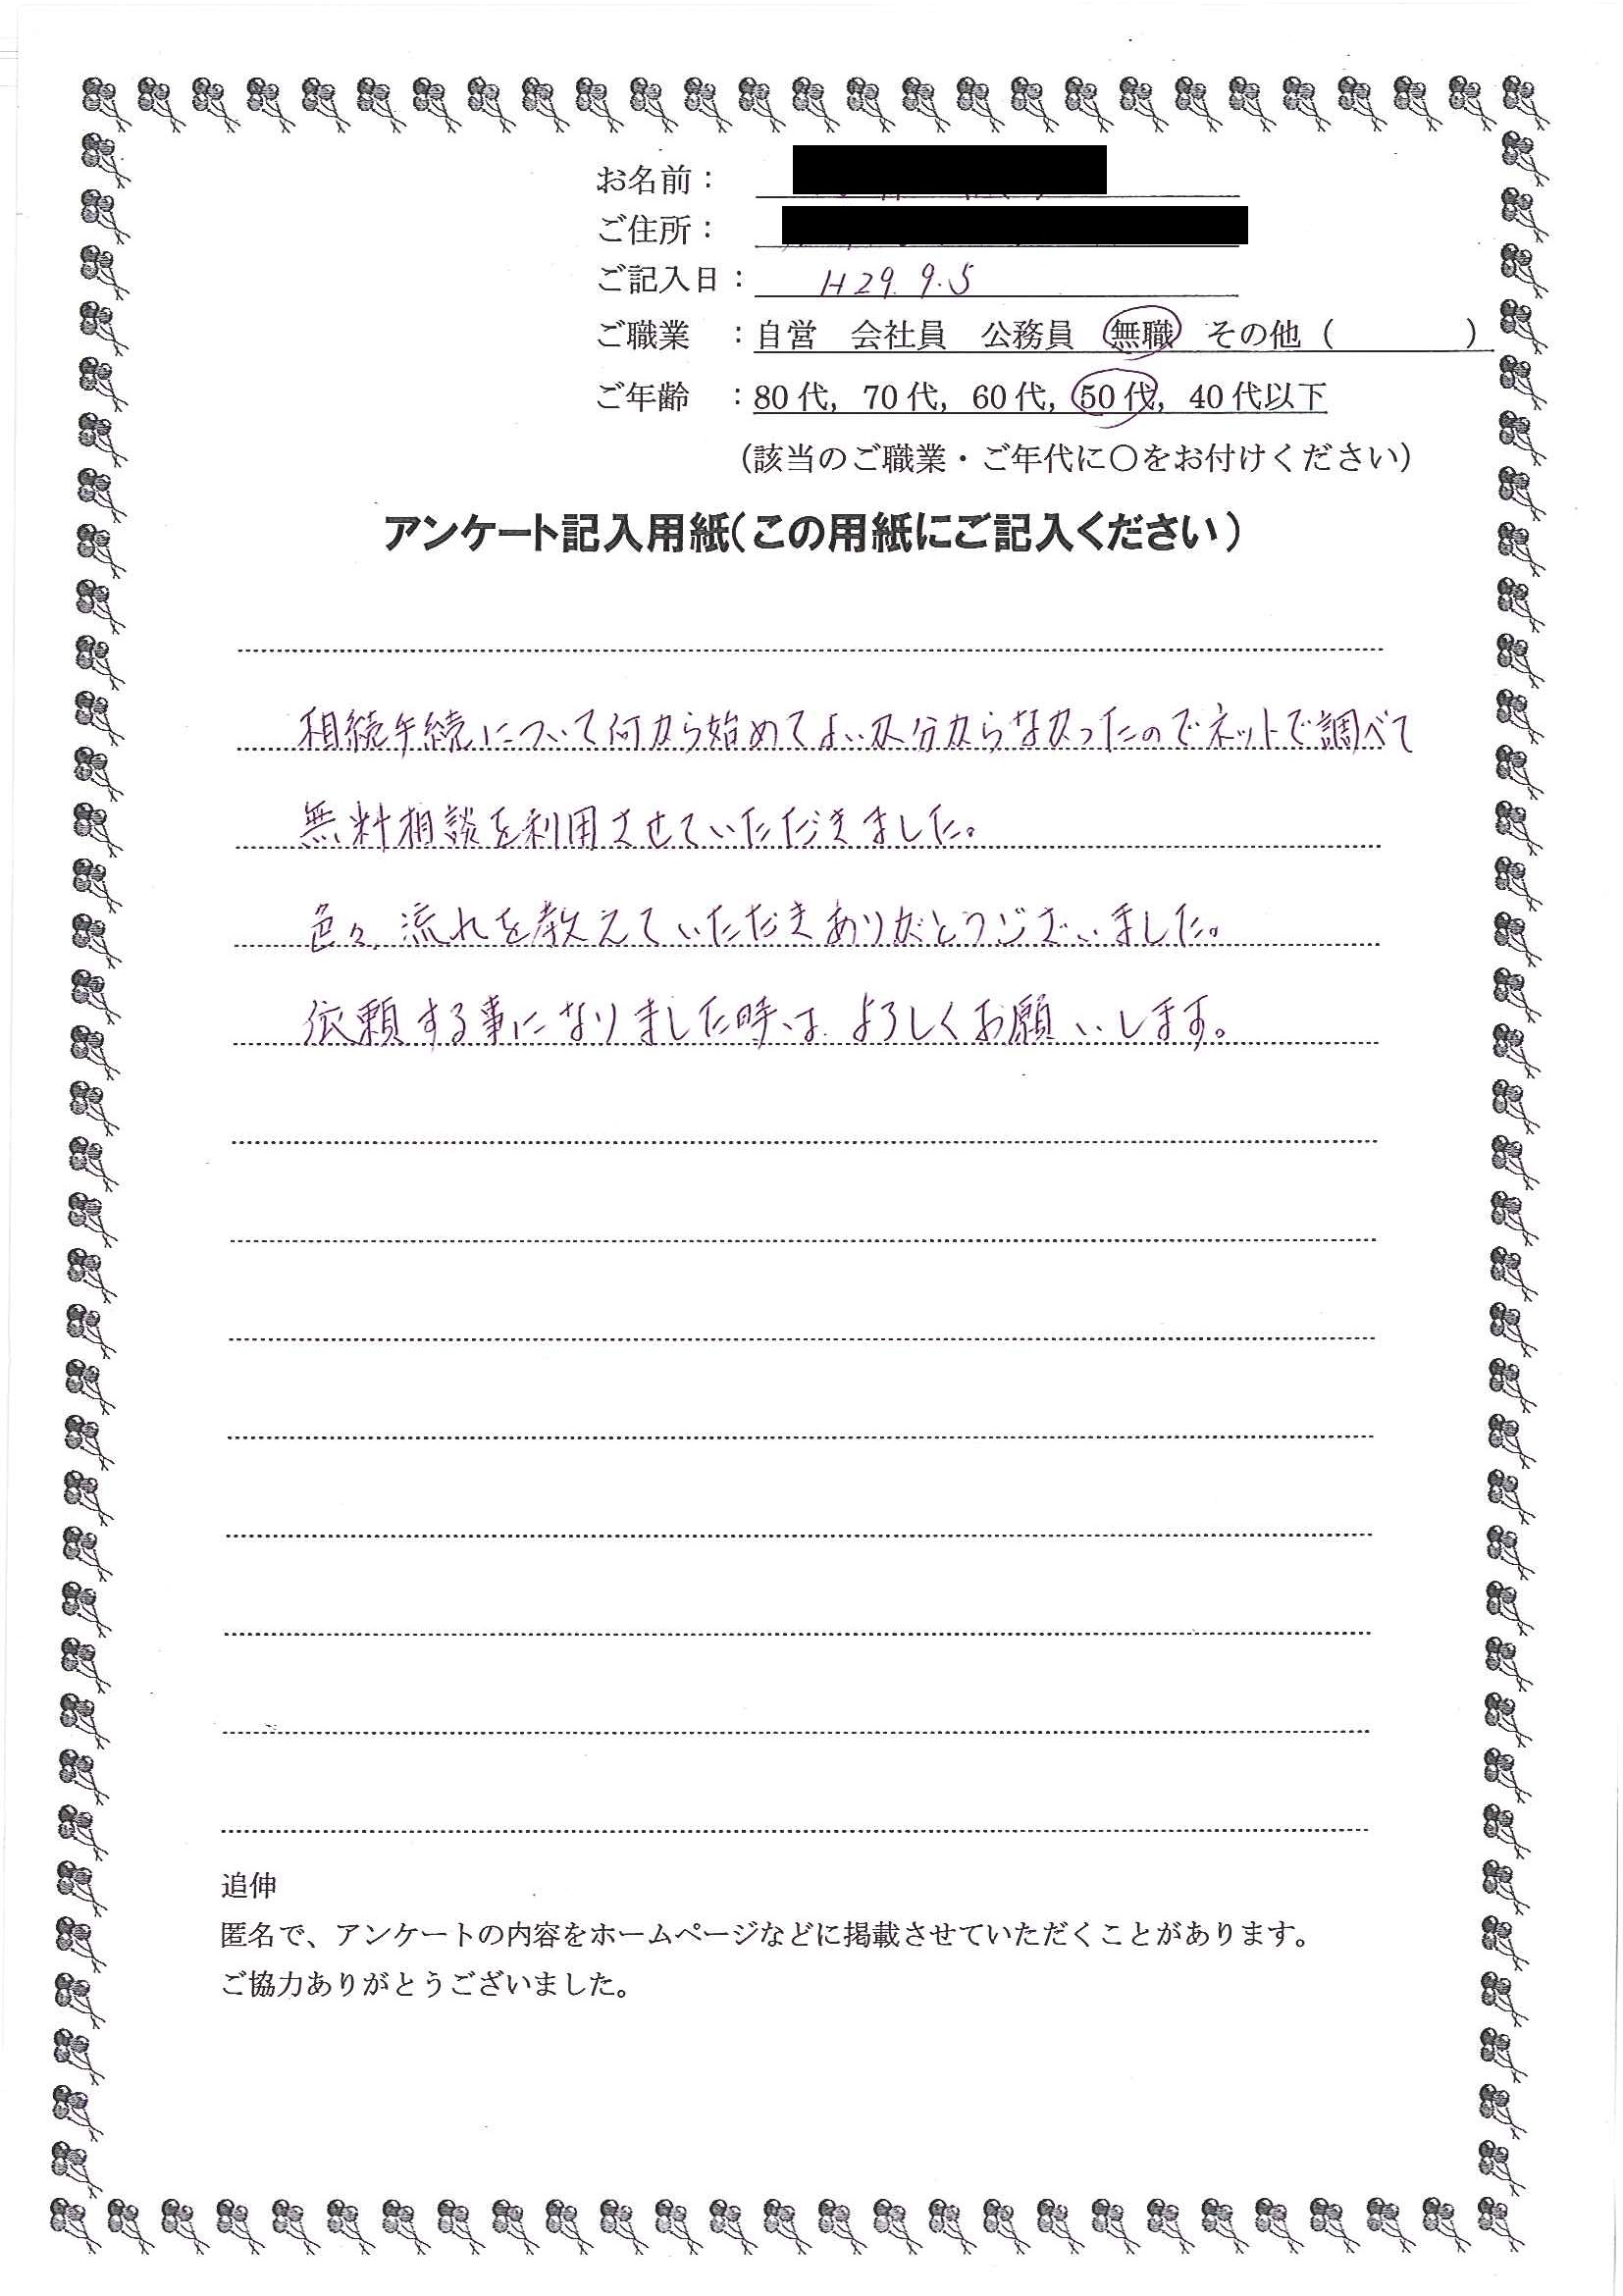 お名前：
ご住所：
ご記入日： H29.9.5
ご職業　：自営　会社員　公務員　無職　その他（　　　　）
ご年齢　：80代，70代，60代，50代，40代以下
（該当のご職業・ご年代に〇をお付けください）
アンケート記入用紙（この用紙にご記入ください）
相続手続について何から始めてよいか分からなかったのでネットで調べて
無料相談を利用させていただきました。
色々、流れを教えていただきありがとうございました。
依頼する事になりました時は、よろしくお願いします。
追伸
匿名で、アンケートの内容をホームページなどに掲載させていただくことがあります。
ご協力ありがとうございました。